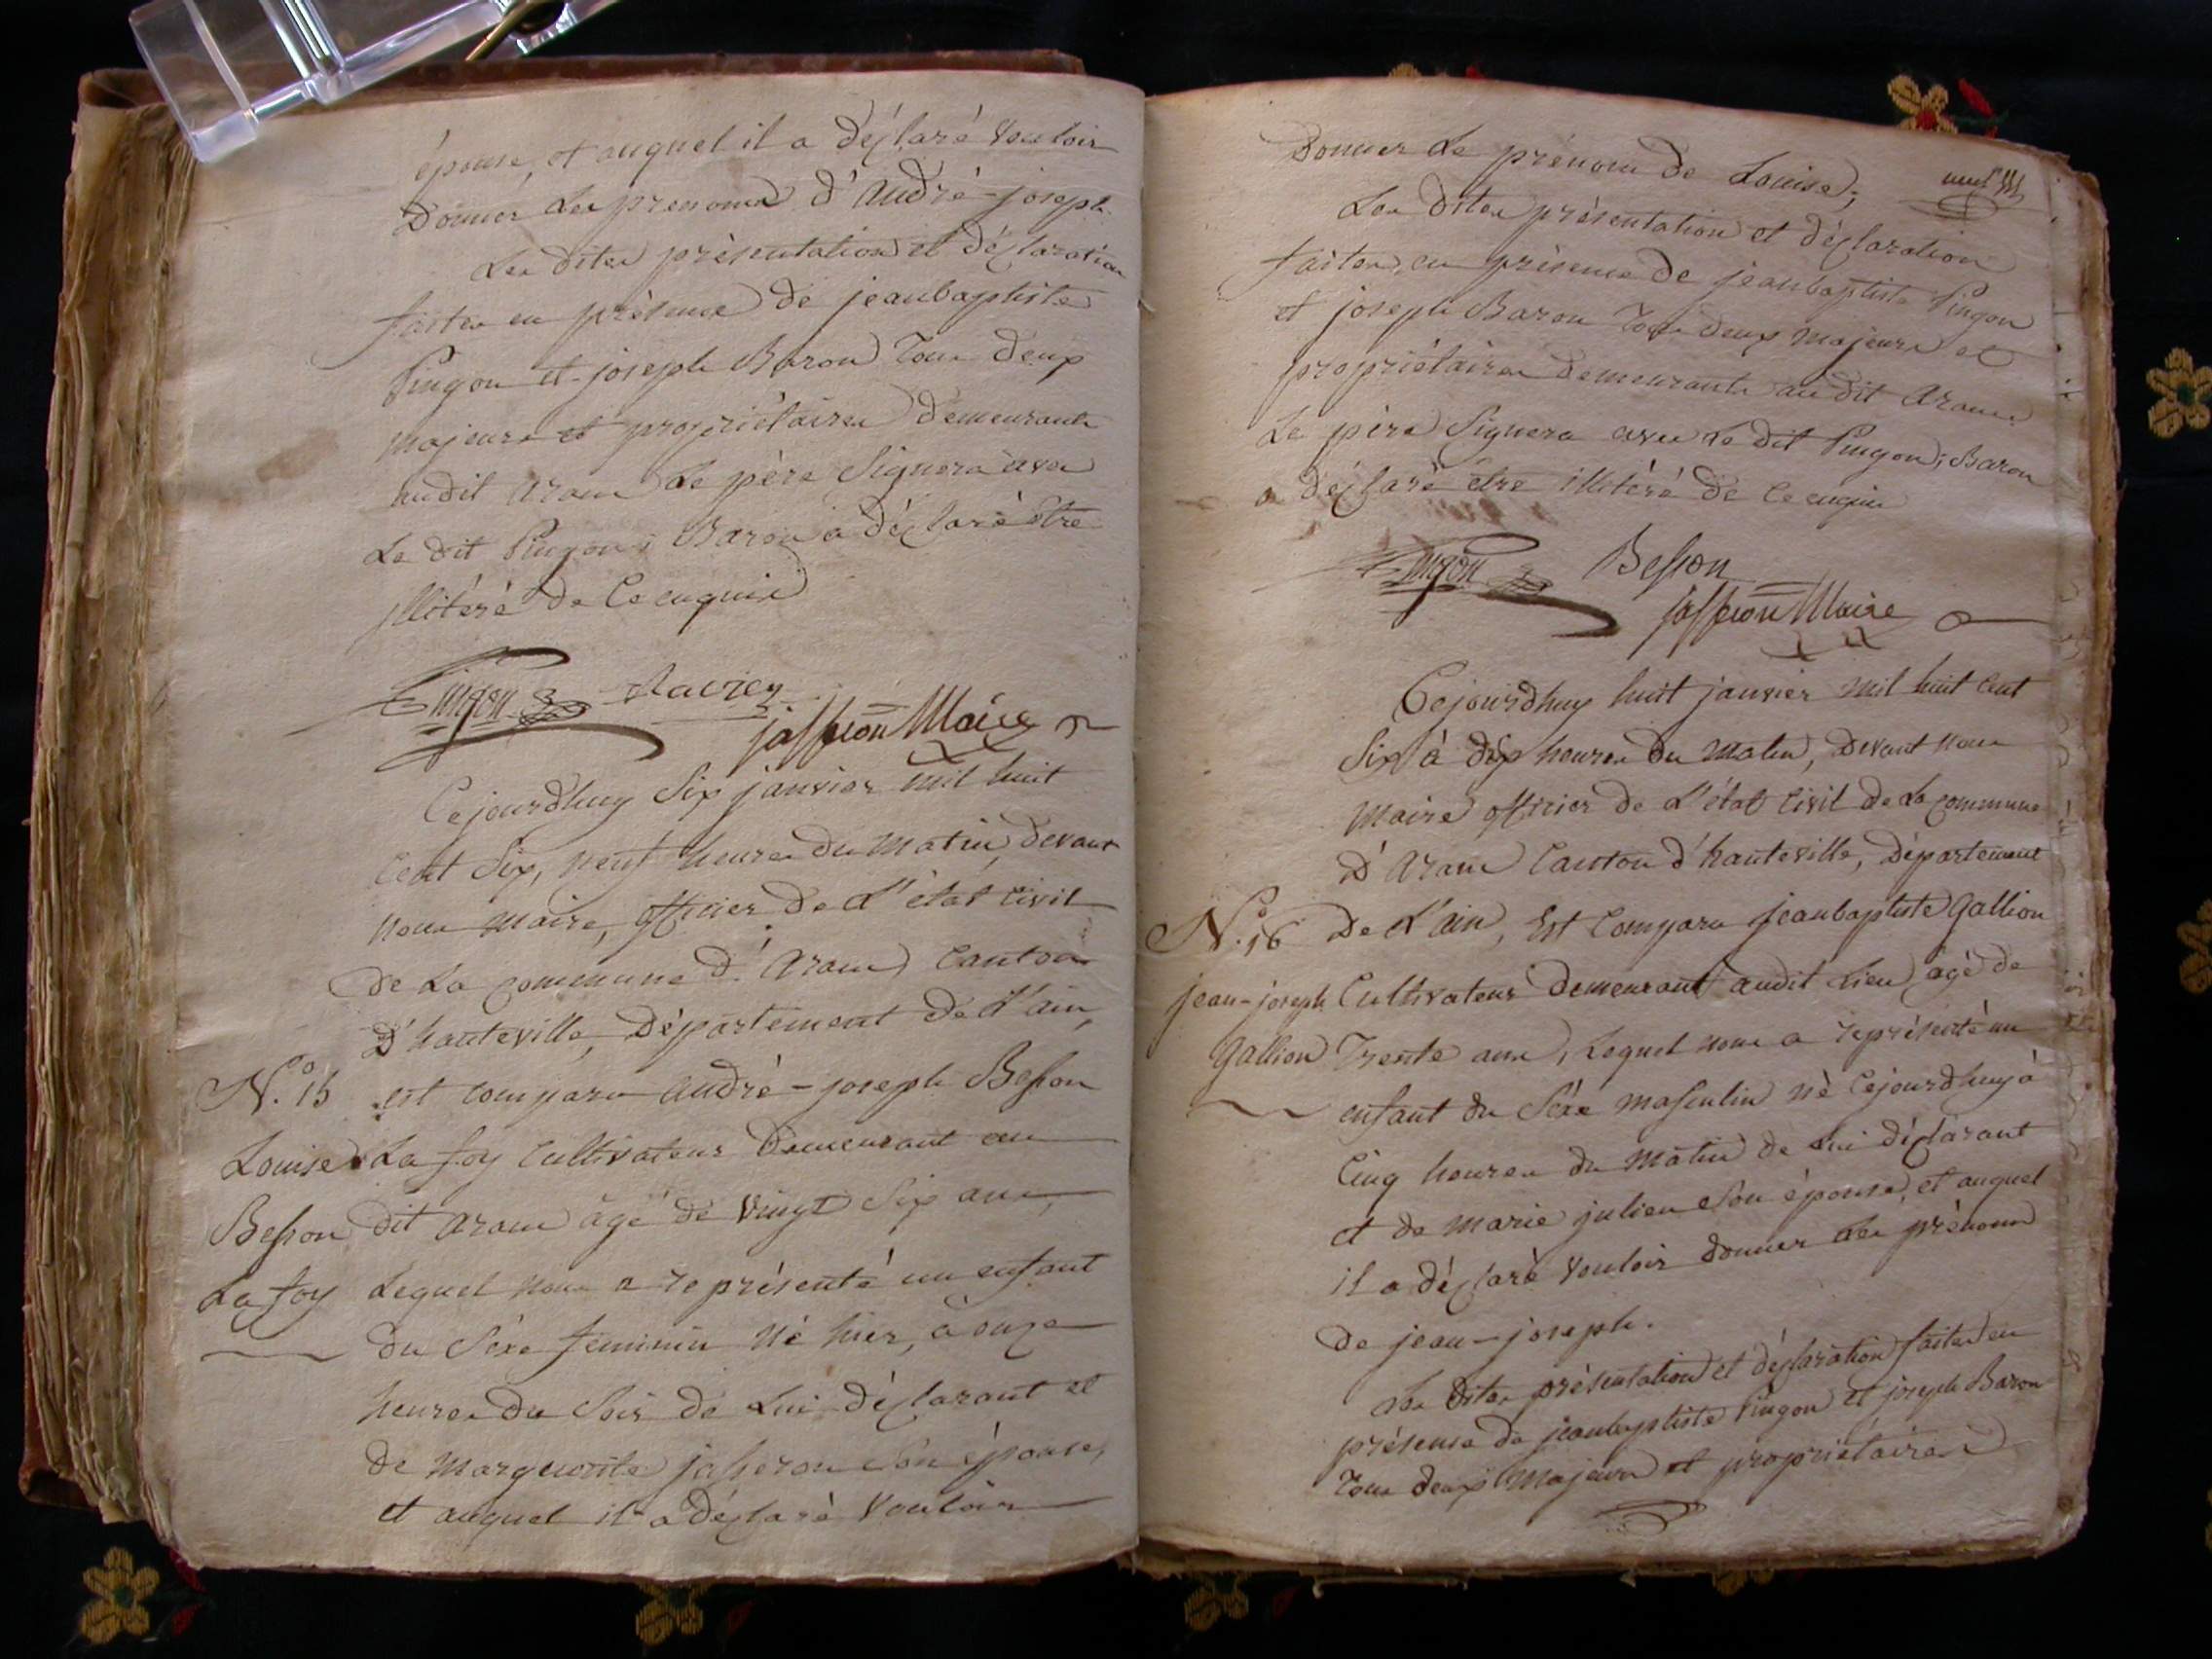 épouse, et auquel il a déclaré vouloir
donner les prenoms d'andré-joseph.
Les dites présentation et déclaration
faites en présence de jeanbaptiste
Pingon et joseph Baron tous deux
majeurs et propriétaires demeurants
audit aran Le père signera avec
Le dit Pingon; Baron a déclaré être
illitéré de ce enquis
Pingon Ravier
jasseron Maire
Cejourdhuy six janvier mil huit
cent six, neuf heures du matin, devant
nous maire, officier de L'état civil
de La commune d'aran canton
d'hauteville, département de L'ain,
N.º 15 est comparu andré-joseph Besson
Louise La foy cultivateur demeurant au
Besson dit aran agé de vingt six ans,
La foy Lequel nous a représenté un enfant
du séxe feminin né hier, à onze
heures du soir de Lui déclarant et
de marguerite jasseron son épouse,
et auquel il a déclaré vouloir
donner Le prénom de Louise;
neuf
Les dites présentation et déclaration
faites, en présence de jeanbaptiste Pingon
et joseph Baron tous deux majeurs et
propriétaires demeurants audit aran
Le père signera avec Le dit Pingon; Baron
a déclaré être illitéré de ce enquis
Pingon Besson
jasseron Maire
Cejourdhuy huit janvier mil huit cent
six à dix heures du matin, devant nous
maire officier de L'état civil de La commune
d'aran canton d'hauteville, département
N.º 16 de L'ain, est comparu jeanbaptiste gallion
jean-joseph cultivateur demeurant audit Lieu agé de
gallion trente ans, Lequel nous a représenté un
enfant du séxe masculin né cejourdhuy à
cinq heures du matin de Lui déclarant
et de marie julien son épouse, et auquel
il a déclaré vouloir donner Les prénoms
de jean-joseph.
Les dites présentation et déclaration faites en
présence de jeanbaptiste Pingon et joseph Baron
tous deux majeurs et propriétaires